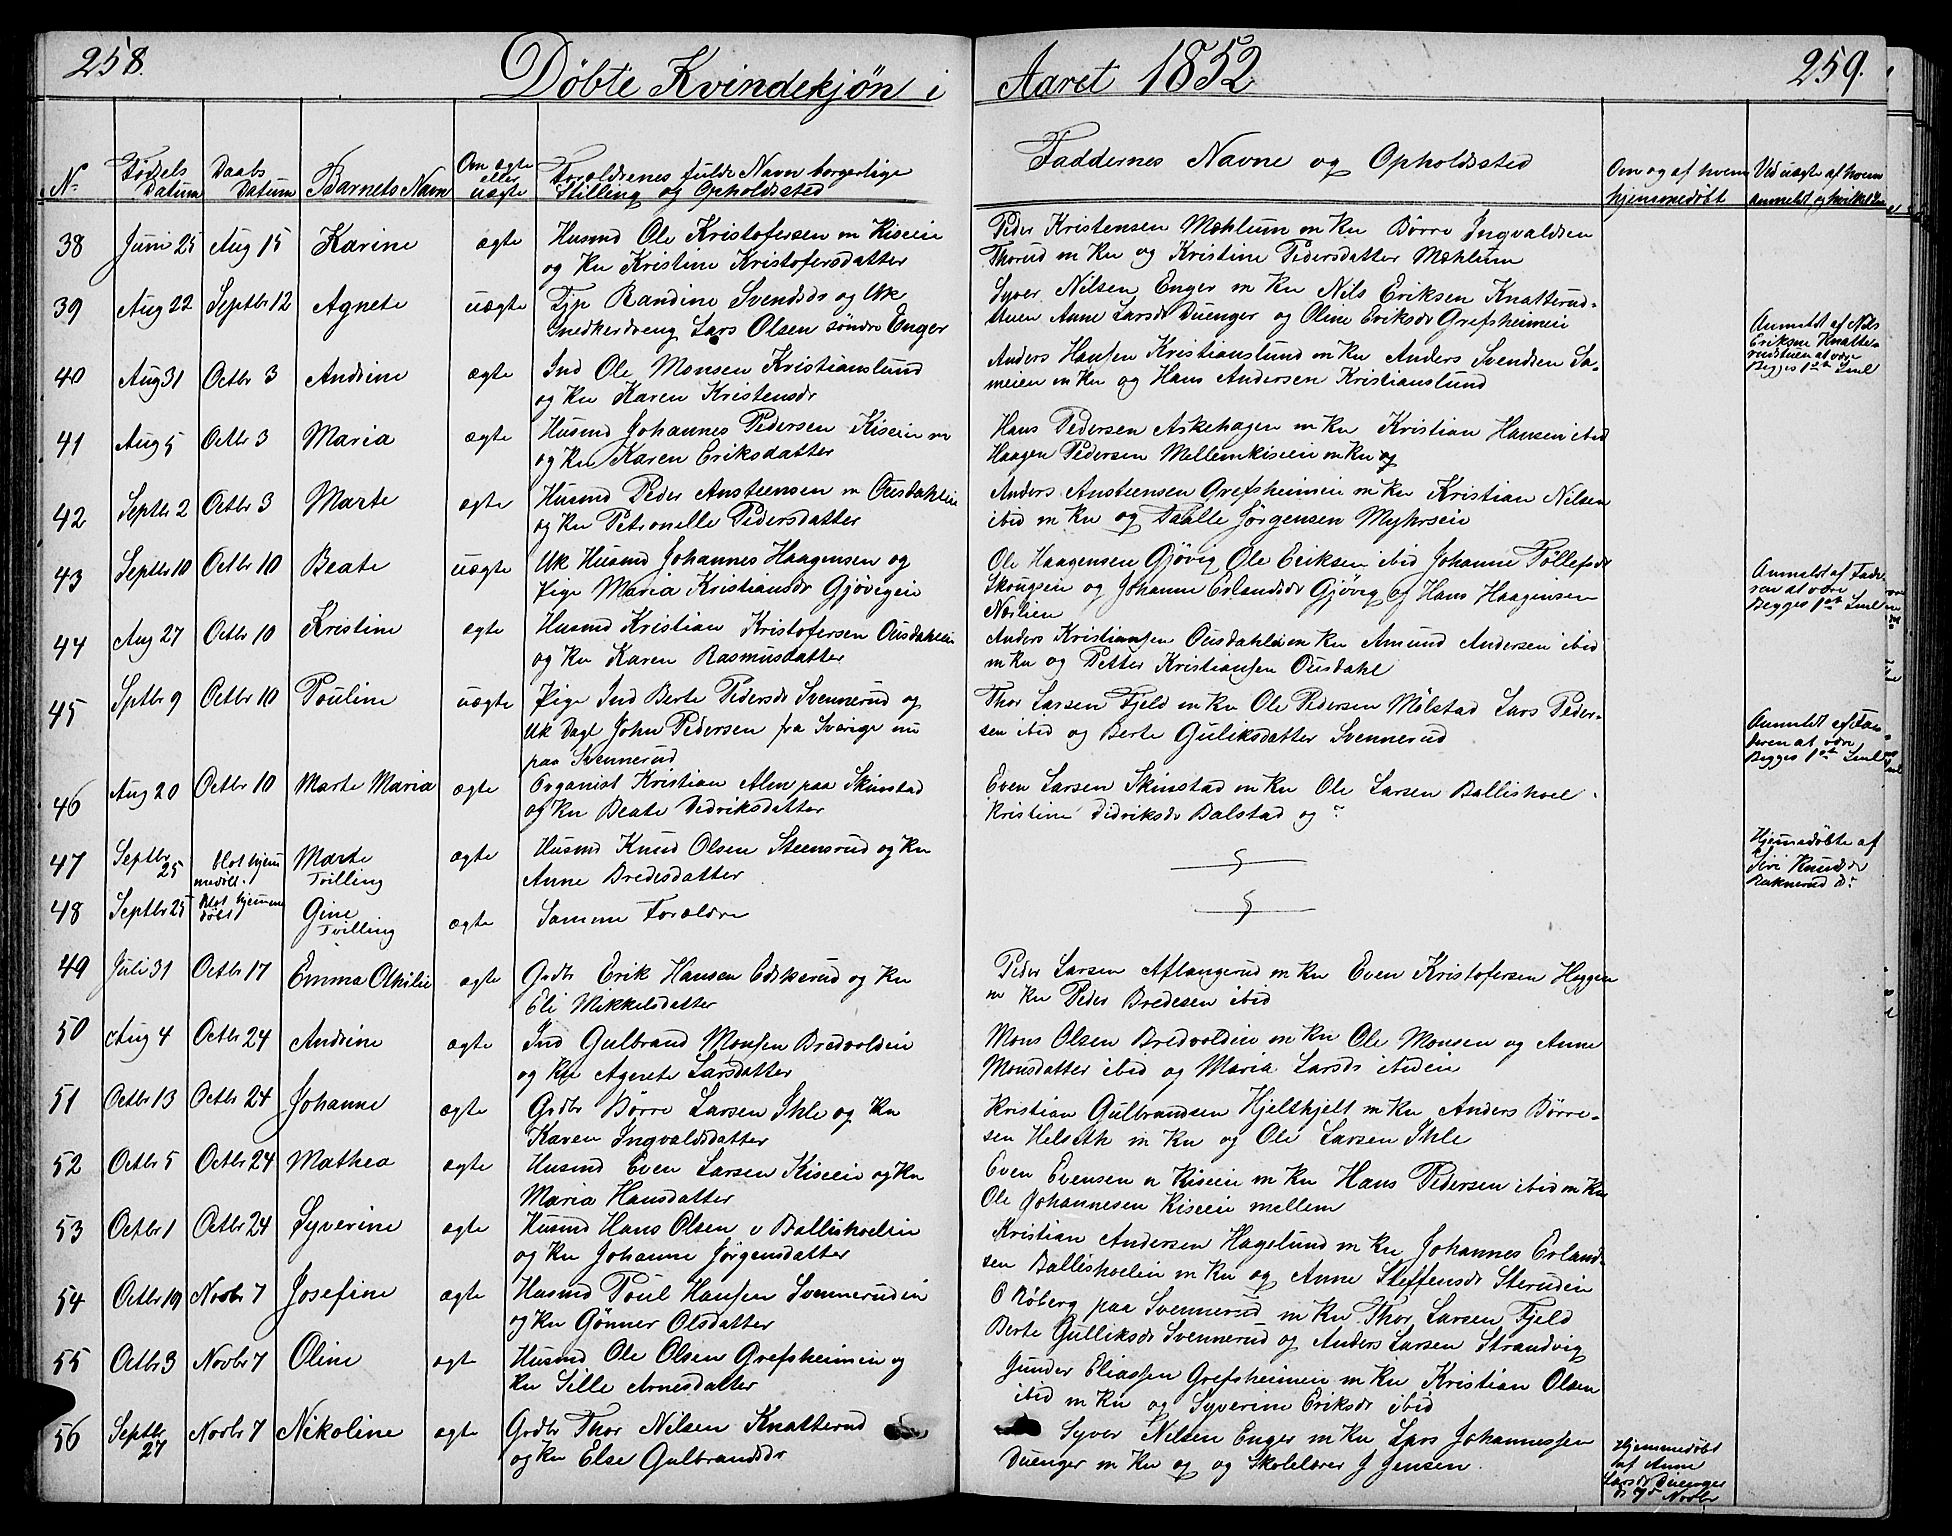 258.
Döbte Kvindekjøn i
Aaret 1852
259.
No
Fødsels Datum
Daabs Datum
Barnets Navn
Om ægte eller uægte
Forældrenes fulde Navn borgerlige
Stilling og Opholdssted
Faddernes Navne og Opholdssted
Om og af hvem
hjemmedøbt
Ved uægte af hvem
anmeldt og
38 Juni 25 Aug 15 Karine ægte Husmd Ole Kristofersen m Kiseie
og Kn Kristine Kristofersdatter
Peder Kristensen Mæhlum m Kn Börre Ingvaldsen
Thorud m Kn og Kristine Pedersdatter Mæhlum
39 Aug 22 Septbr 12 Agnete uægte Tjp Randine Svendsdr og Uk
Snedkerdreng Lars Olsen söndre Enger
Syver Nilsen Enger m Kn Nils Eriksen Knatterud-
stuen Anne Larsdr Duenger og Oline Eriksdr Grefsheimeie
Anmeldt af Nils
Eriksen Knatte-
rudstuen at være
Begges 1ste Leul
40 Aug 31 Octbr 3 Andrine ægte Ind Ole Monsen Kristianslund
og Kn Karen Kristensdr
Anders Hansen Kristianslund m Kn Anders Svendsen Sa-
meien m Kn og Hans Andersen Kristianslund
41 Aug 5 Octbr 3 Maria ægte Husmd Johannes Pedersen Kiseie m
og Kn Karen Eriksdatter
Hans Pedersen Askehagen m Kn Kristian Hansen ibid
Haagen Pedersen Mellemkiseie m Kn og
42 Septbr 2 Octbr 3 Marte ægte Husmd Peder Ansteensen m Ousdahleie
og Kn Petronelle Pedersdatter
Anders Ansteensen Grefsheimeie m Kn Kristian Nilsen
ibid m Kn og Paalle Jörgensen Myhrseie
43 Septbr 10 Octbr 10 Beate uægte Uk Husmd Johannes Haagensen og
Pige Maria Kristiansdr Gjövigeie
Ole Haagensen Gjövig Ole Eriksen ibid Johanne Töllefsdr
Skougseie og Johanne Erlandsdr Gjövig og Hans Haagensen
Næslien
Anmeldt af Fade-
ren at være
Begges 1ste Leul
44 Aug 27 Octbr 10 Kristine ægte Husmd Kristian Kristofersen Ousdahleie
og Kn Karen Rasmusdatter
Anders Kristiansen Ousdahleie m Kn Amund Andersen ibid
m Kn og Petter Kristiansen Ousdahl
45 Sptbr 9 Octbr 10 Pouline uægte Pige Ind Berte Pedersdr Svennerud og
Uk Dagl John Pedersen fra Sverige nu
paa Svennerud
Thor Larsen Fjeld m Kn Ole Pedersen Mölstad Lars Peder-
sen ibid og Berte Guliksdatter Svennerud
Anmeldt af Fa-
deren at være
Begges 1ste Leul
46 Aug 20 Octbr 10 Marte Maria ægte Organist Kristian Alm paa Skinstad
og Kn Beate Didriksdatter
Even Larsen Skinstad m Kn Ole Larsen Ballishoel
Kristine Didriksdr Balstad og ?
47 Septbr 25 blot hjem
medöbt. Marte
Tvilling ægte Husmd Knud Olsen Steensrud og Kn
Anne Bredesdatter
Hjemedöbte af
Siri Knudsdr
48 Septbr 25 Blot hjemme
döbt Gine
Tvilling ægte Samme Forældre
49 Juli 31 Octbr 17 Emma Othilie ægte Grdbr Erik Hansen Eskerud og Kn
Eli Mikkelsdatter
Peder Larsen Aflangerud m Kn Even Kristofersen Haggen
m Kn Peder Bredesen ibid
50 Aug 4 Octbr 24 Andrine ægte Ind Gulbrand Monsen Bredvoldeie
og Kn Agnete Larsdatter
Mons Olsen Bredvoldeie m Kn Ole Monsen og Anne
Monsdatter ibid og Maria Larsdr ibideie
51 Octbr 13 Octbr 24 Johanne ægte Grdbr Börre Larsen Ihle og Kn
Karen Ingvaldsdatter
Kristian Gulbrandsen Hjelthjelt m Kn Anders Börre-
sen Helseth m Kn og Ole Larsen Ihle
52 Octbr 5 Octbr 24 Mathea ægte Husmd Even Larsen Kiseie og Kn
Maria Hansdatter
Even Evensen n Kiseie m Kn Hans Pedersen ibid m Kn
Ole Johannesen Kiseie mellem
53 Octbr 1 Octbr 24 Syverine ægte Husmd Hans Olsen v Ballishoeleie
og Kn Johanne Jörgensdatter
Kristian Andersen Hagelund m Kn Johannes Erland-
sen Ballishoeleie m Kn og Anne Steffensdr Sterudeie
54 Octbr 19 Novbr 7 Josefine ægte Husmd Poul Hansen Svennerudeie
og Kn Gönner Olsdatter
O Röberg paa Svennerud m Kn Thor Larsen Fjeld
Berte Gulliksdr Svennerud og Anders Larsen Strandvig
55 Octbr 3 Novbr 7 Oline ægte Husmd Ole Olsen Grefsheimeie og
Kn Sille Arnesdatter
Gunder Eliassen Grefsheimeie m Kn Kristian Olsen
ibid m Kn og Syverine Eriksdr ibid
56 Septbr 27 Novbr 7 Nikoline ægte Grdbr Thor Nilsen Knatterud
og Kn Else Gulbrandsdr
Syver Nilsen Enger m Kn Lars Johannessen
Duenger m Kn og og Skolelærer J Jensen
Hjemmedöbt
af Anne
Larsdr Duenger
d 7de Novbr